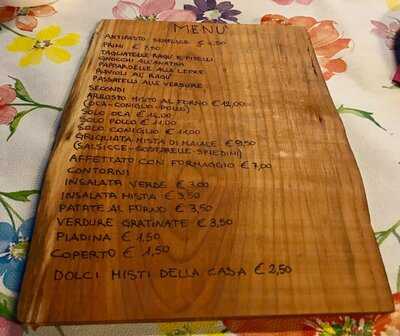 MENÙ
ANTIPASTO SEMPLICE € 2,50
PRIMI € 7,50
TAGLIATELLE RAGÙ E PISELLI
GNOCCHI ALL'ANATRA
PAPPARDELLE ALLA LEPRE
RAVIOLI AL RAGÙ
PASSATELLI ALLE VERDURE
SECONDI
ARROSTO MISTO AL FORNO € 12,00
(OCA-CONIGLIO-POLLO)
SOLO OCA € 14,00
SOLO POLLO € 11,00
SOLO CONIGLIO € 11,00
GRIGLIATA MISTA DI MAIALE € 9,50
(SALSICCE-COSTARELLE-SPIEDINI)
AFFETTATO CON FORMAGGIO € 7,00
CONTORNI
INSALATA VERDE € 3,00
INSALATA MISTA € 3,50
PATATE AL FORNO € 3,50
VERDURE GRATINATE € 3,50
PIADINA € 1,50
COPERTO € 1,50
DOLCI MISTI DELLA CASA € 2,50